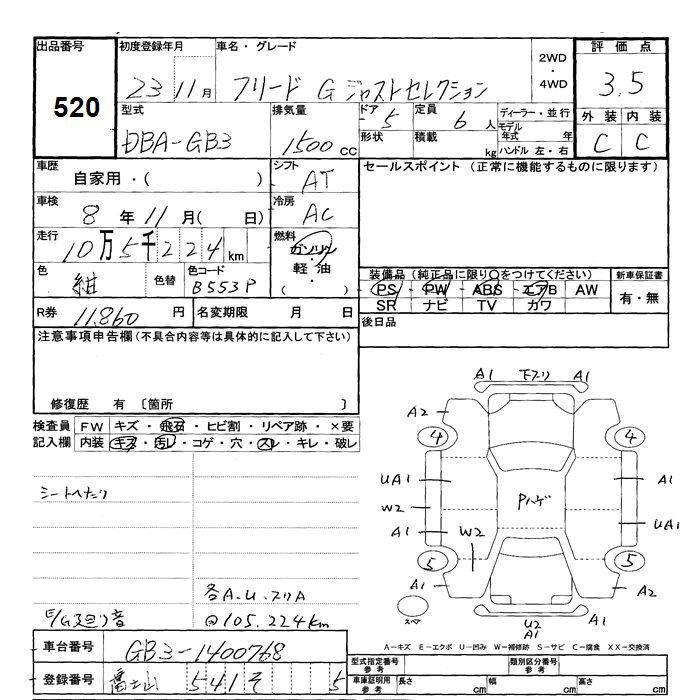 出品番号 520
初度登録年月 23 11月
車名・グレード フリード G ジャストセレクション
2WD ・ 4WD
評価点 3.5
外装 内装
C C
型式 DBA-GB3
排気量 1500 CC
ドア 5 定員 6 人
形状 積載 kg
ディーラー・並行
モデル年式 年
ハンドル 左・右
車歴 自家用・( )
シフト AT
セールスポイント (正常に機能するものに限ります)
車検 8 年 11 月( 日)
冷房 AC
走行 10万5千224 km
燃料 ガソリン・軽油 ( )
色 紺 色替 色コード B553P
装備品(純正品に限り〇をつけてください)
PS PW ABS エアB AW
SR ナビ TV カワ
新車保証書 有・無
R券 11,860 円 名変期限 月 日
後日品
注意事項申告欄(不具合内容等は具体的に記入して下さい)
修復歴 有 〔箇所 〕
検査員記入欄
FW キズ・飛石・ヒビ割・リペア跡・×要
内装 キズ・汚レ・コゲ・穴・スレ・キレ・破レ
シートへたり
各A.U.スリA
E/Gヨ廻り音 @105.224km
A1 下スリ A1
A2
4 4
UA1 A1
W2 Pハゲ
A1 W2 UA1
5 5
A1 A2
スペア U2 A1
A-キズ E-エクボ U-凹み W-補修跡 S-サビ C-腐食 XX-交換済
車台番号 GB3-1400768
登録番号 富士山 541 そ 5
型式指定番号 参考 類別区分番号 参考
車庫証明用 参考 長さ cm 幅 cm 高さ cm